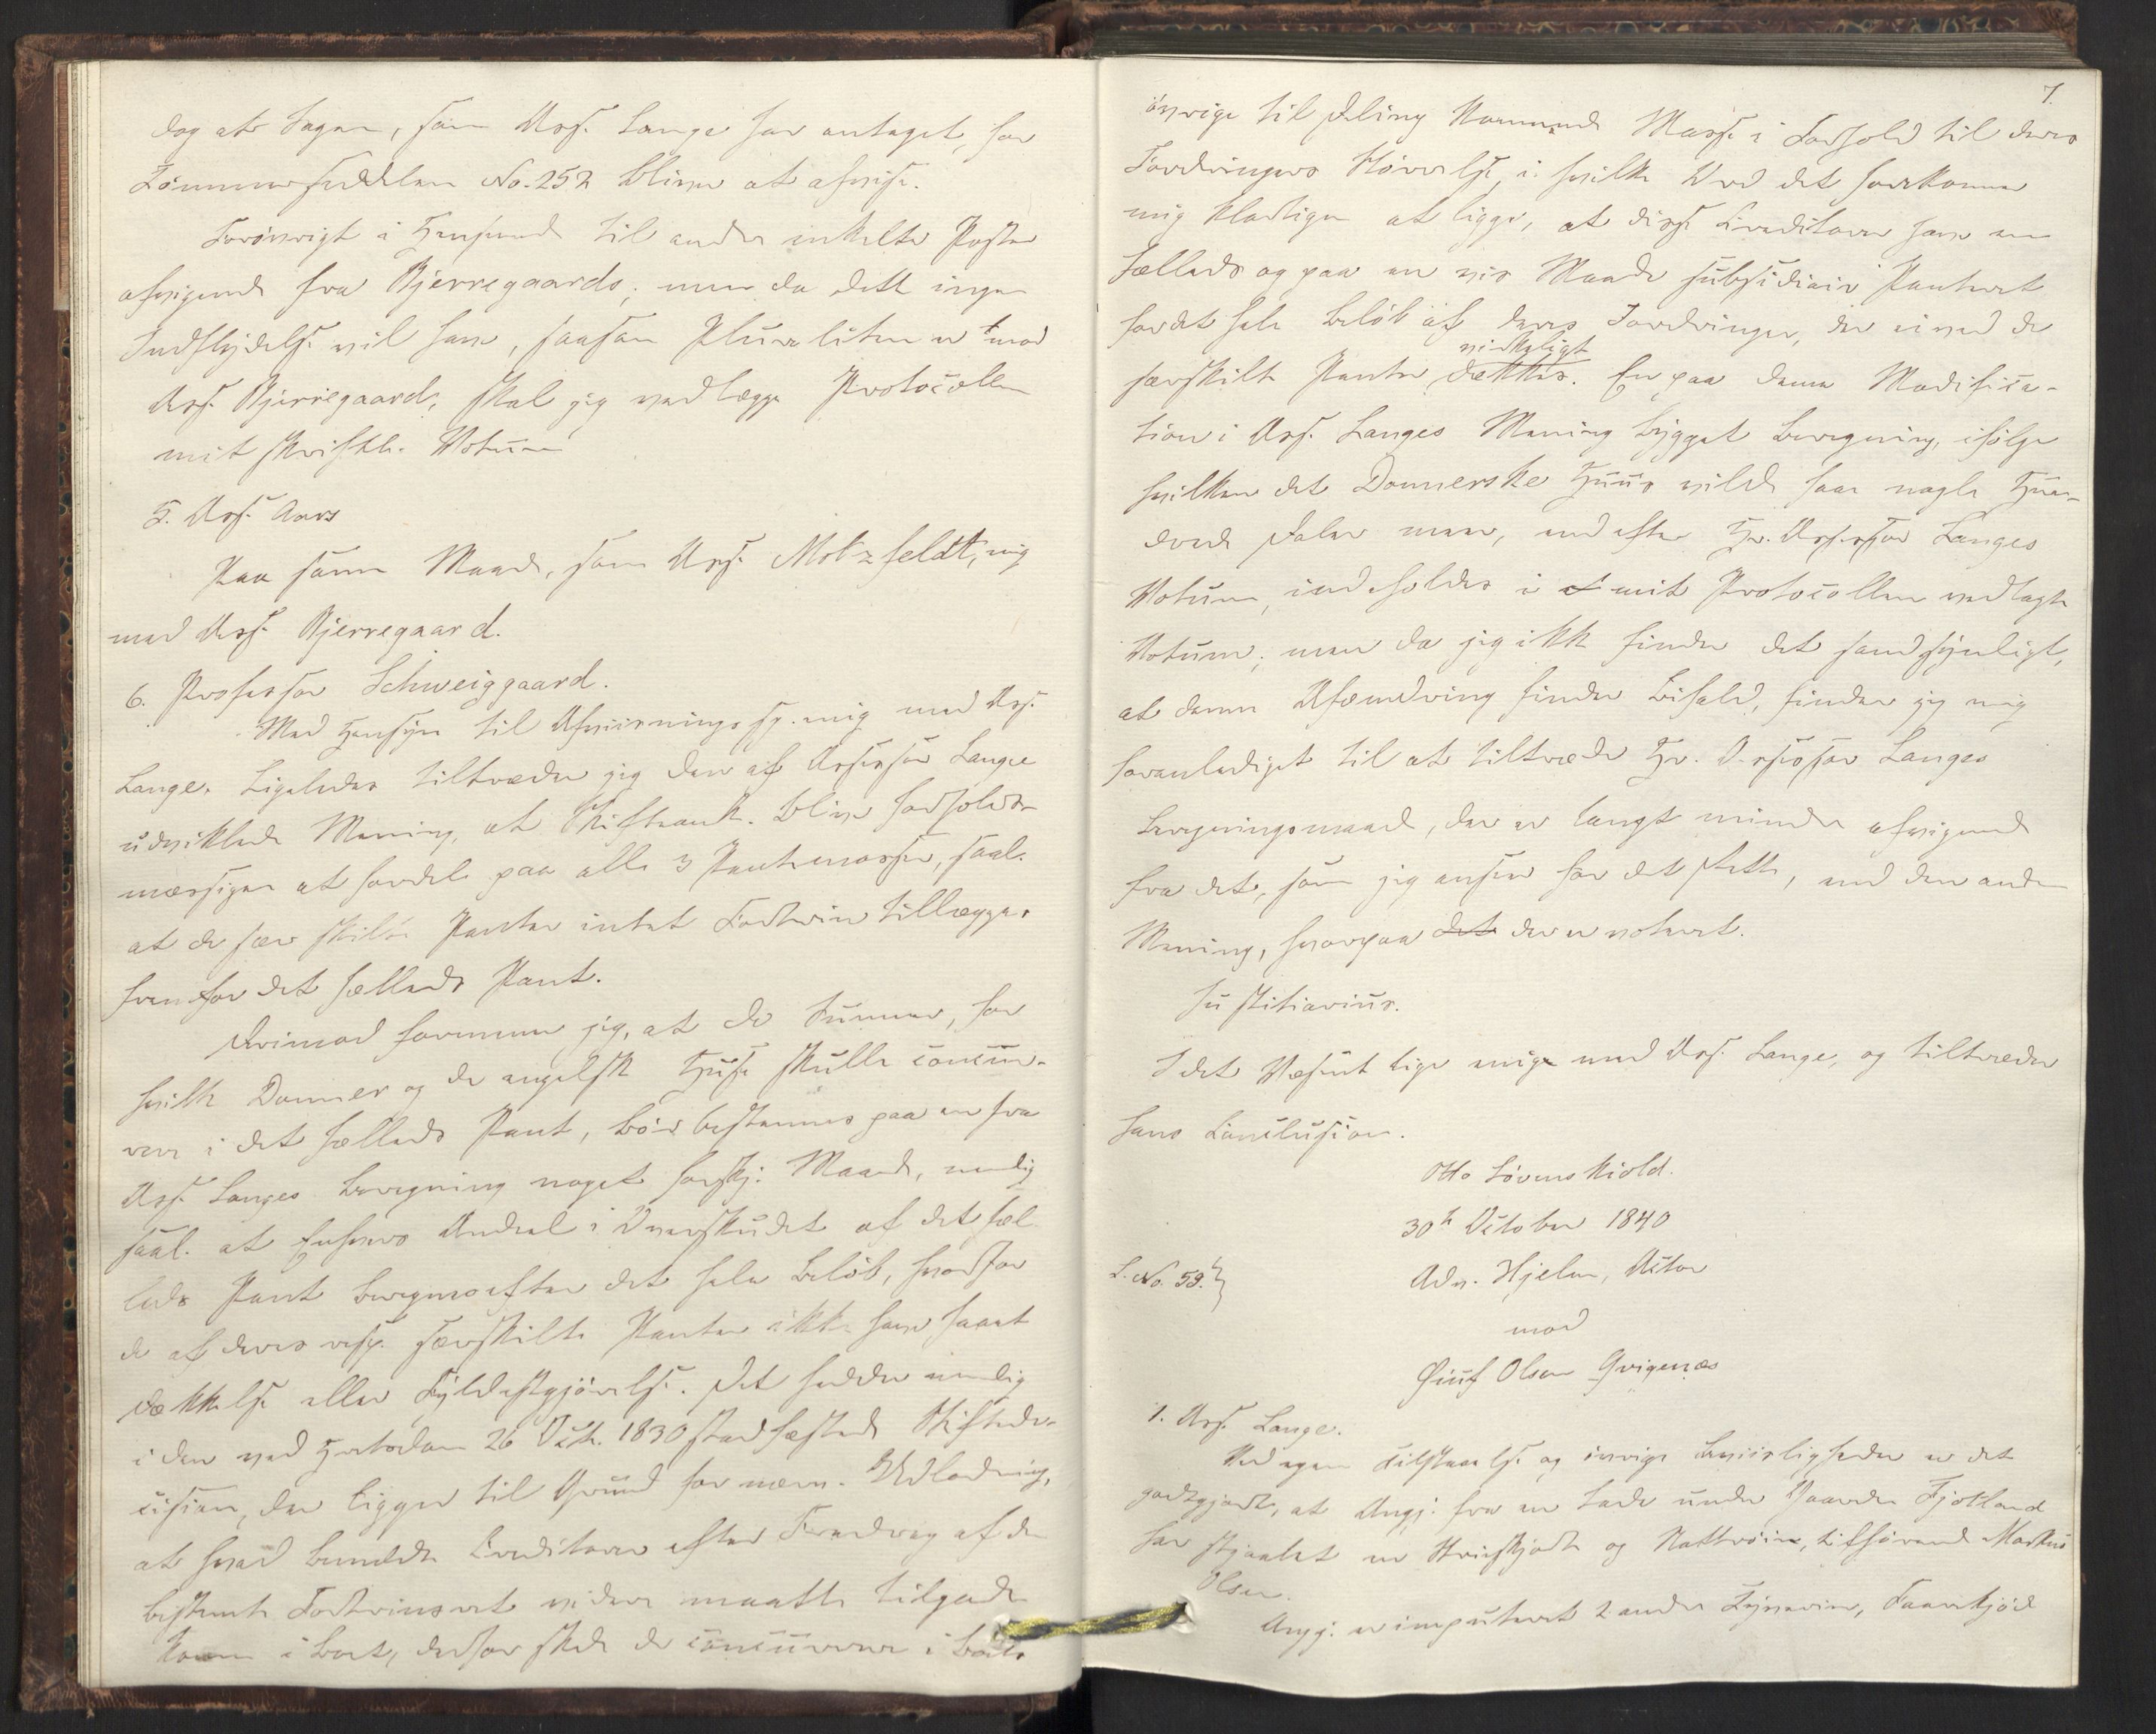 dog at Sagen, som Ass. Lange har antaget, for
Tømmerseddelen No. 252 bliver at afvise.
Forövrigt i Henseende til andre enkelte Poster
afvigende fra Bjerregaards; men da dette ingen
Indflydelse vil have, saasom Pluraliteten er mod
Ass. Bjerregaard, skal jeg vedlægge Protocollen
mit skriftl. Votum
5. Ass. Aars
Paa samme Maade, som Ass. Motzfeldt, enig
med Ass. Bjerregaard.
6. Professor Schweiggaard.
Med Hensyn til Afviisningssp. enig med Ass.
Lange. Ligeledes tiltræder jeg den af Assessor Lange
udviklede Mening, at Skifteomk. blive forholds-
mæssigen at fordele paa alle 3 Pantemasser, saal.
at de særskilte Panter intet Fortrin tillægges
fremfor det fælleds Pant.
Derimod formener jeg, at de Summer, for
hvilke Donner og de engelske Huse skulle concur-
rere i det fælleds Pant, bör bestemmes paa en fra
Ass. Langes Beregning noget forskj. Maade, nemlig
saal. at Enhvers Andeel i Overskudet af det fæl-
leds Pant beregnes efter det hele Belöb, hvorfor
de af deres resp. særskilte Panter ikke have faaet
Dækkelse eller Fyldestgjörelse. Det hedder nemlig
i den ved Höiesteretsdom 26 Oct. 1830 stadfæstede Skiftede-
cision, der ligger til Grund for nærv. Udlodning,
at hvad bemeldte Creditorer efter Fradrag af den
bestemte Fortrinsret videre maatte tilgode-
komme i Boet, derfor skede de concurrere i Boets
7.
övrige til Deling kommende Masse i Forhold til deres
Fordringers Störrelse, i hvilke Ord det forekommer
mig klarligen at ligge, at disse Creditorer have en
fælleds og paa en vis Maade subsidiair Panteret
for det hele Belöb af deres Fordringer, der ei ved de
særskilte Panter virkeligt dækkes. En paa denne Modifica-
tion i Ass. Langes Mening bygget Beregning, ifölge
hvilken det Donnerske Huus vilde faae nogle Hun-
drede Daler mere, end efter Hr. Assessor Langes
Votum, indeholdes i et mit Protocollen vedlagte
Votum; men da jeg ikke finder det sandsynligt,
at denne Afændring finder Bifald, finder jeg mig
foranlediget til at tiltræde Hr. Assessor Langes
Beregningsmaade, der er langt mindre afvigende
fra det, som jeg anseer for det Rette, end den anden
Mening, hvorpaa det der er voteret.
Justitiarius.
I det Væsentlige enig med Ass. Lange, og tiltræder
hans Conclusion.
Otto Lövenskiold.
30te October 1840
L. No. 59.
Adv. Hjelm, Actor
mod
Olsen Qvigenæs
1. Ass. Lange.
Ved egen Tilstaaelse og övrige Beviisligheder er det
godtgjort, at Angj. fra en Lade under Gaarden Fjotland
har stjaalet en Skjorte og Nattröie, tilhörende Markus
Olsen.
Angj. er imputeret 2 andre Tyverier,